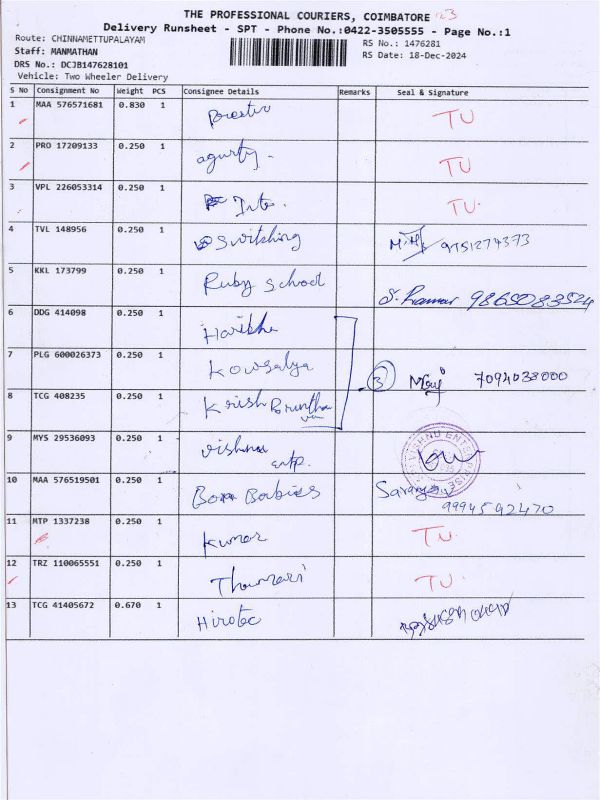 THE PROFESSIONAL COURIERS, COIMBATORE
Delivery Runsheet - SPT - Phone No.:0422-3505555 - Page No.:1
Route: CHINNAMETTUPALAYAM
Staff: MANMATHAN
DRS No.: DCJB147628101
Vehicle: Two Wheeler Delivery
RS No.: 1476281
RS Date: 18-Dec-2024
S No Consignment No Weight PCS Consignee Details Remarks Seal & Signature
1 MAA 576571681 0.830 1 TU
2 PRO 17209133 0.250 1 TU
3 VPL 226053314 0.250 1 TU
4 TVL 148956 0.250 1 Switching 9751274373
5 KKL 173799 0.250 1 Ruby School S. Kumar
6 DDG 414098 0.250 1
7 PLG 600026373 0.250 1 Kowsalya 3 7094038000
8 TCG 408235 0.250 1 Krish
9 MYS 29536093 0.250 1 Vishnu
10 MAA 576519501 0.250 1 Babies
9994592470
11 MTP 1337238 0.250 1 Kumar TU
12 TRZ 110065551 0.250 1 TU
13 TCG 41405672 0.670 1 Hirotec